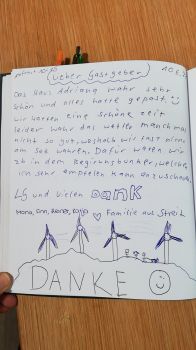 10.8.
Lieber Gastgeber
Das Haus Adriana wahr sehr
schön und alles hatte gepasst.
wir hatten eine schöne zeit
leider wahr das wetter manchmal
nicht so gut, weshalb wir fast nicht
am See wahren. Dafür waren wir
zb in dem Regirungsbunker, welchen
ich sehr empfelen kann anzuschauen.
LG und vielen DANK
Familie aus Streit
DANKE